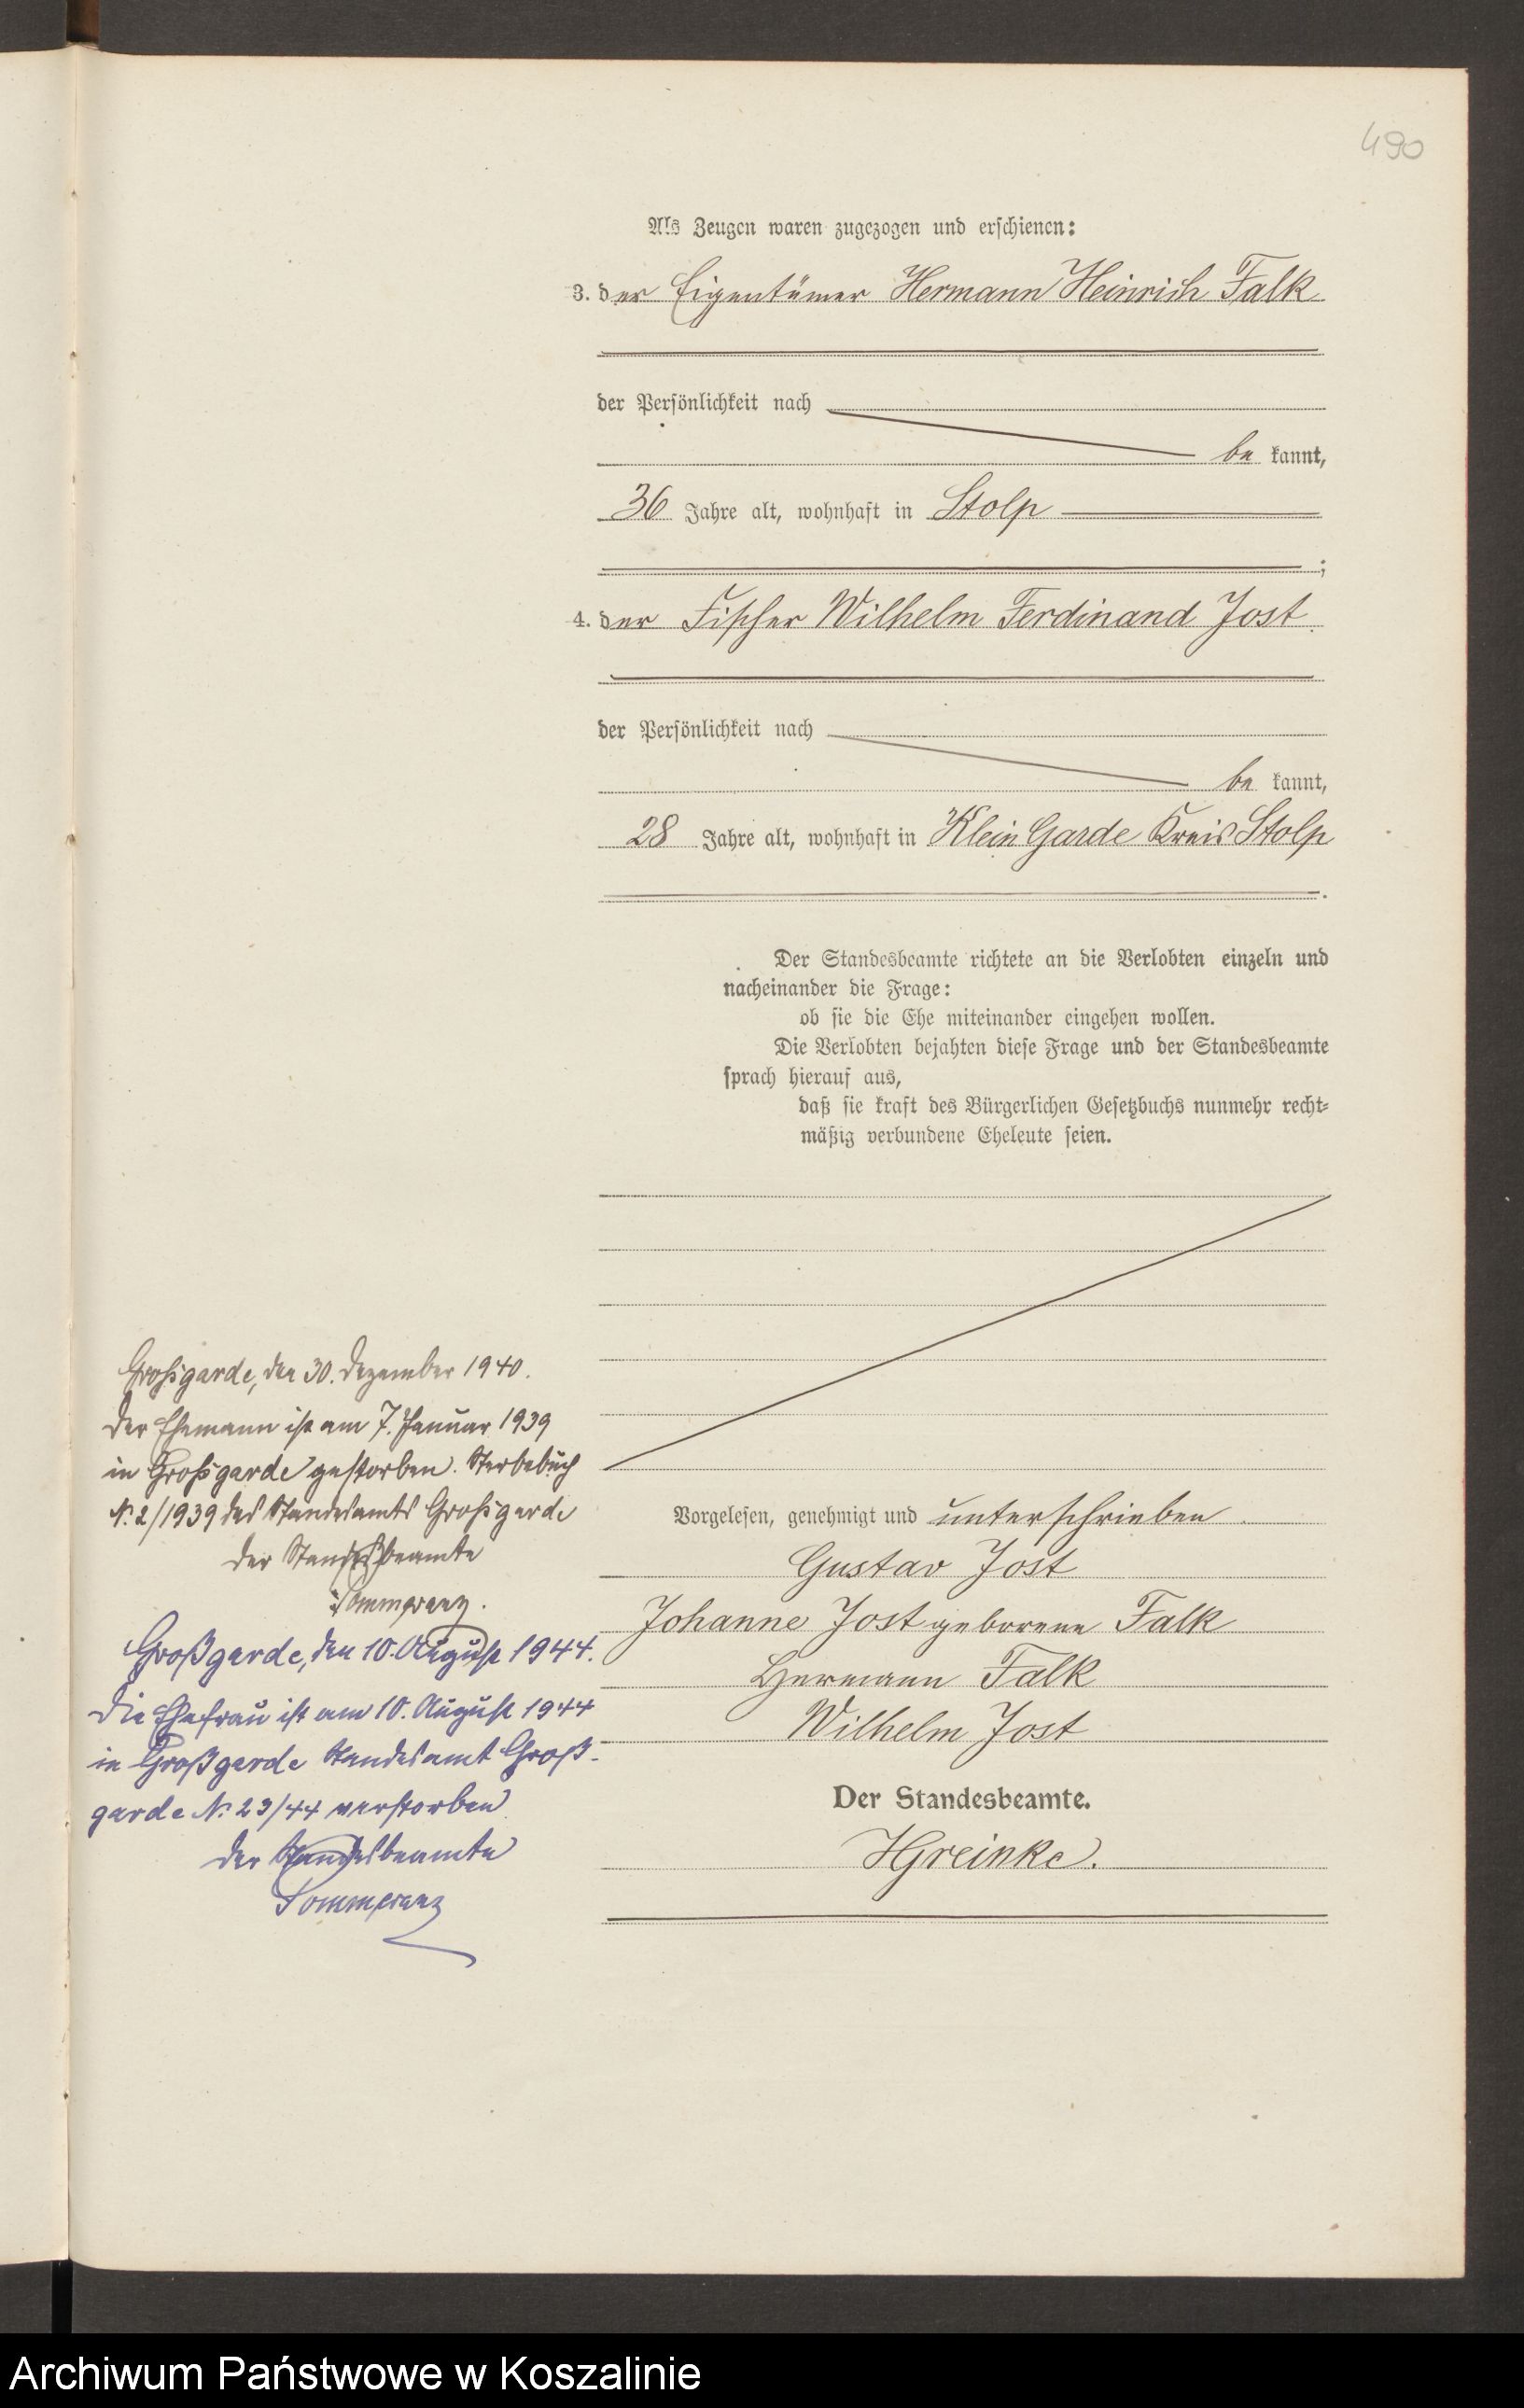 490
Als Zeugen waren zugezogen und erschienen:
3. der Eigentümer Hermann Heinrich Falk
der Persönlichkeit nach
be kannt,
36 Jahre alt, wohnhaft in Stolp
;
4. der Fischer Wilhelm Ferdinand Jost
der Persönlichkeit nach
be kannt,
28 Jahre alt, wohnhaft in Klein Garde Kreis Stolp
.
Der Standesbeamte richtete an die Verlobten einzeln und
nacheinander die Frage:
ob sie die Ehe miteinander eingehen wollen.
Die Verlobten bejahten diese Frage und der Standesbeamte
sprach hierauf aus,
daß sie kraft des Bürgerlichen Gesetzbuchs nunmehr recht-
mäßig verbundene Eheleute seien.
Vorgelesen, genehmigt und unterschrieben.
Gustav Jost
Johanne Jost geborene Falk
Hermann Falk
Wilhelm Jost
Der Standesbeamte.
Greinke.
Grossgarde, den 30. Dezember 1940.
Der Ehemann ist am 7. Januar 1939
in Grossgarde gestorben. Sterbebuch
Nr. 2/1939 des Standesamts Grossgarde
Der Standesbeamte
Großgarde, den 10. August 1944.
Die Ehefrau ist am 10. August 1944
in Großgarde Standesamt Groß-
garde Nr. 23/44 verstorben
Der Standesbeamte
Archiwum Państwowe w Koszalinie